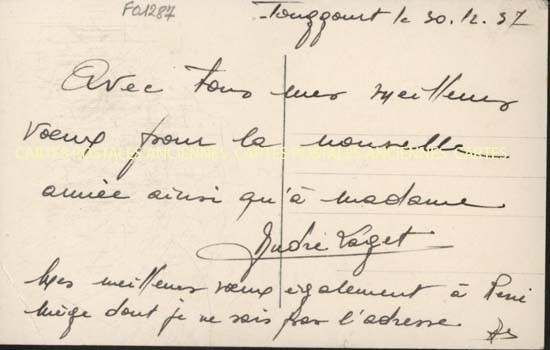 F01287
Touggourt le 30.12.37
Avec tous mes meilleurs
vœux pour la nouvelle
CARTES POSTALES ANCIENNES CARTES POSTALES ANCIENNES CARTES
année ainsi qu'à madame
André Laget
Mes meilleurs vœux également à René
dont je ne sais pas l'adresse